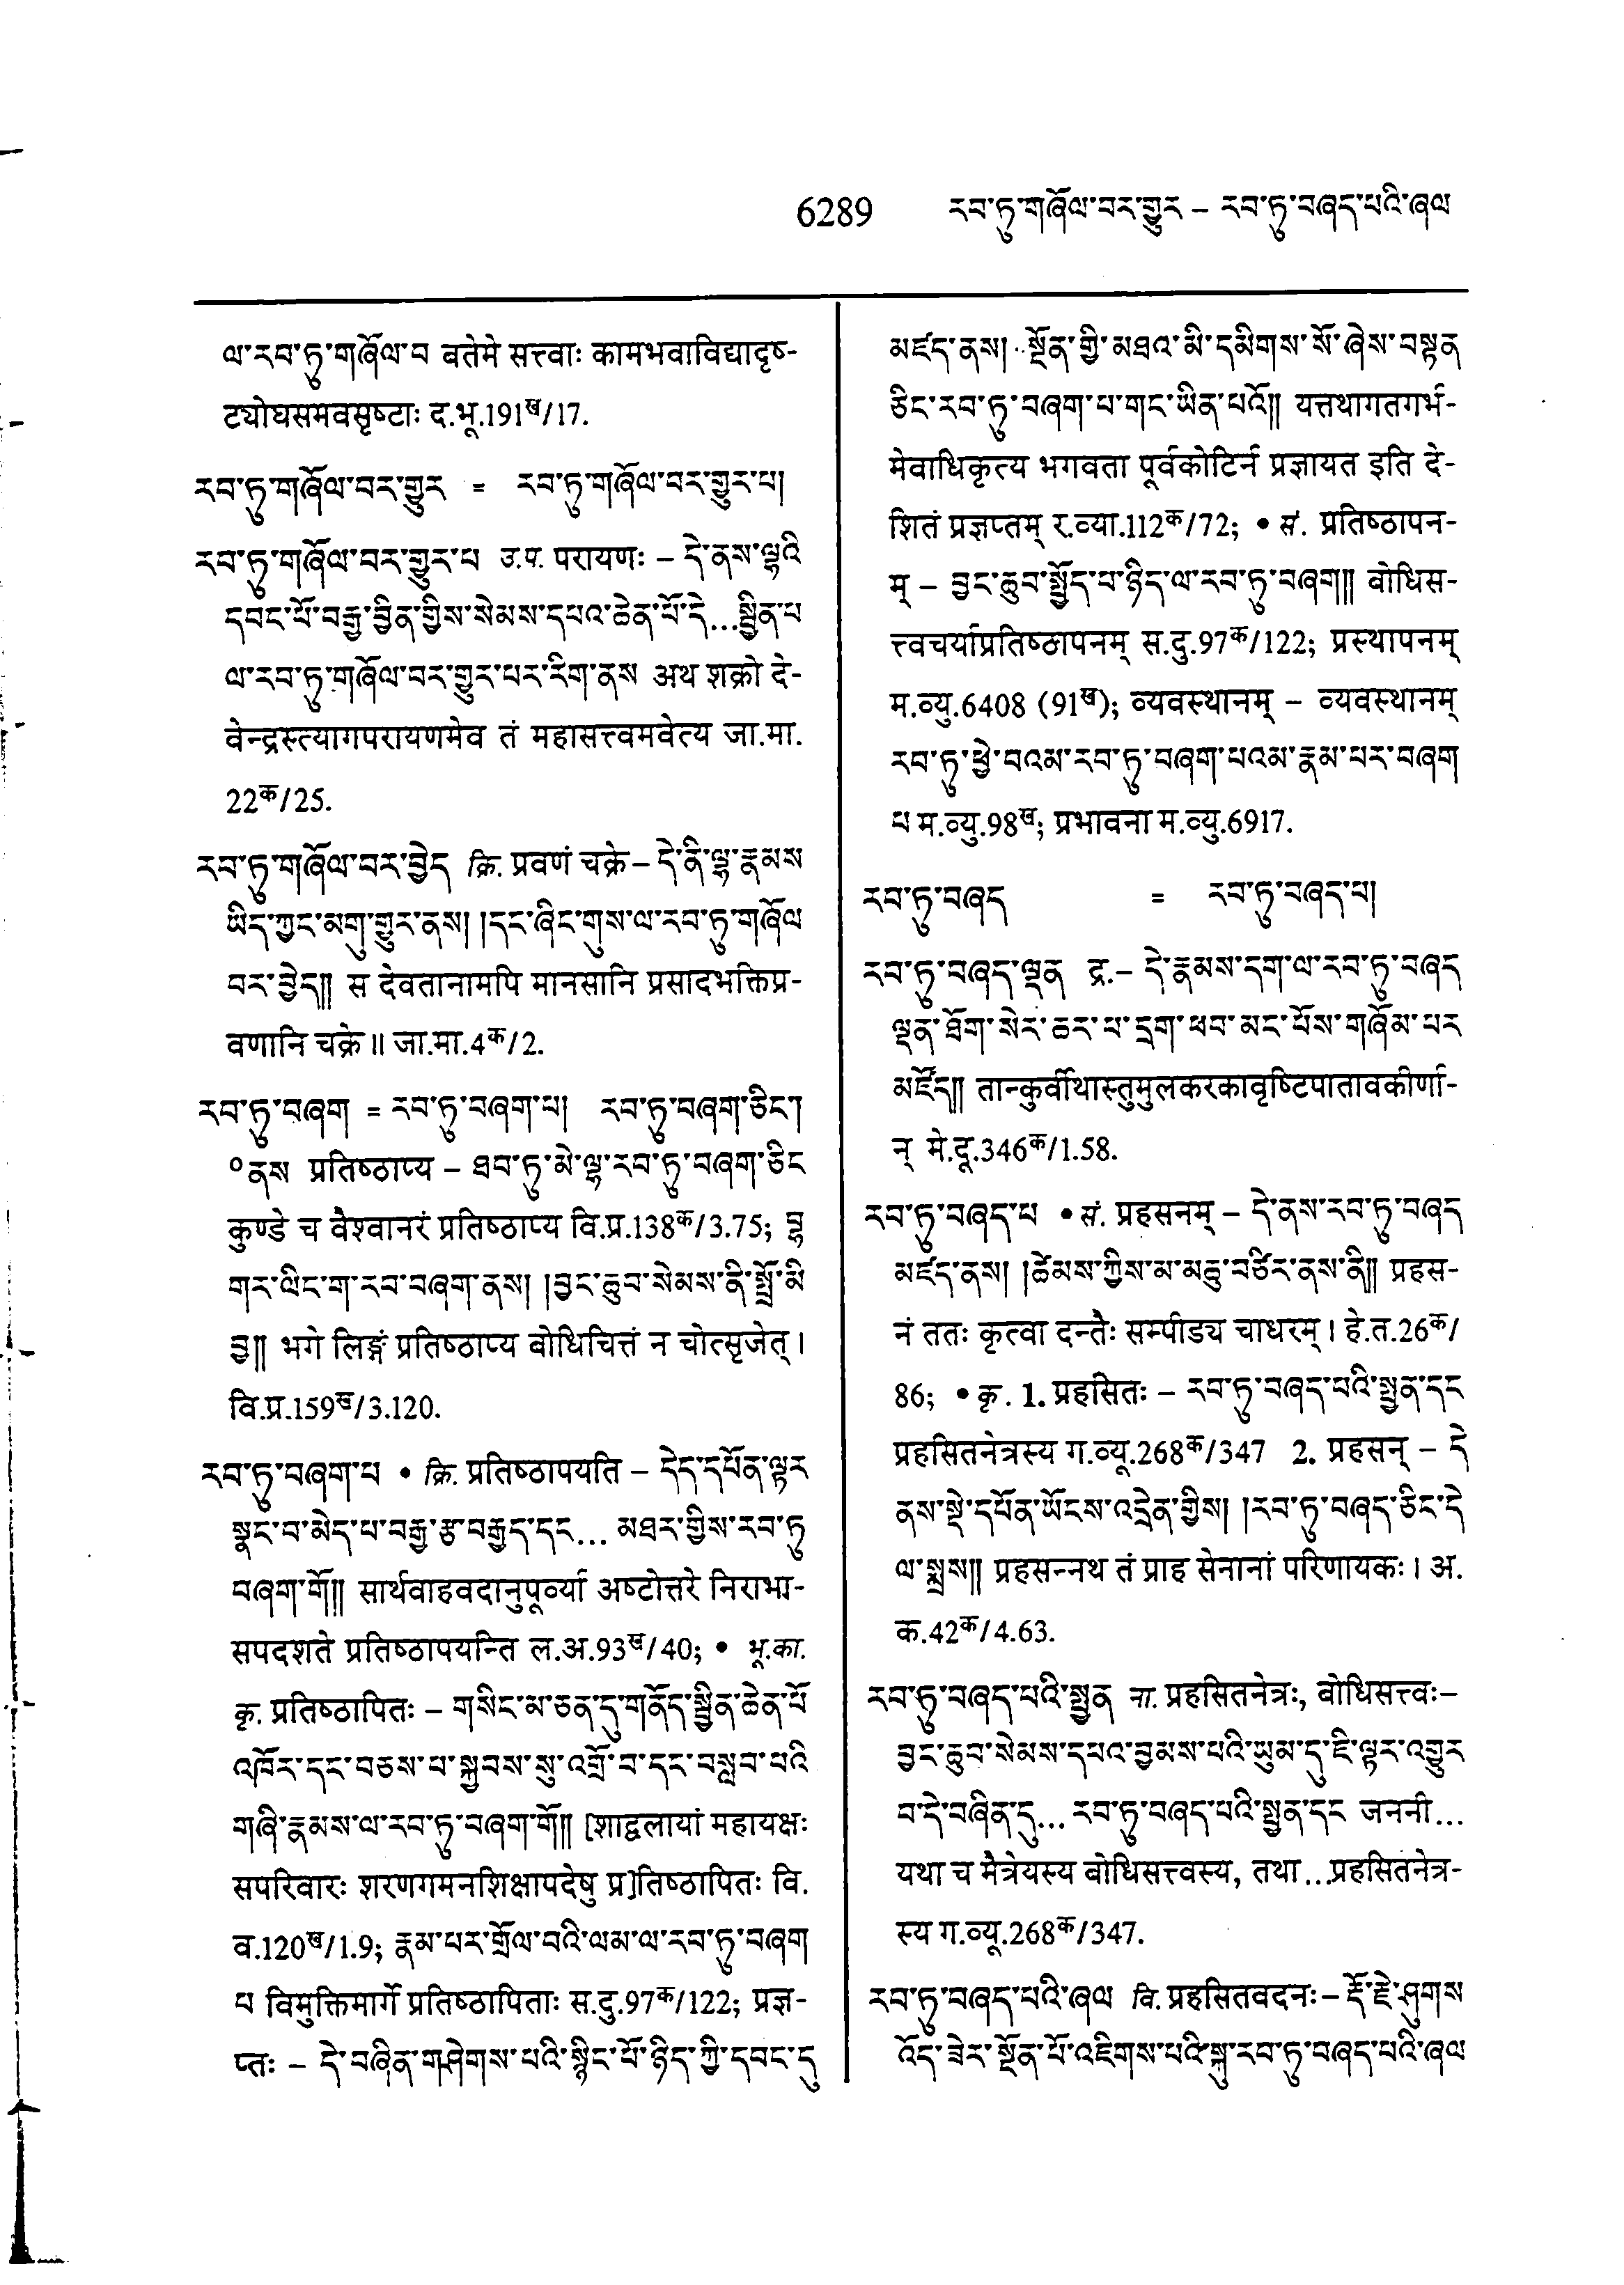 6289 རབ་ཏུ་གཞོལ་བར་གྱུར – རབ་ཏུ་བཞད་པའི་ཞལ
ལ་རབ་ཏུ་གཞོལ་བ बतेमे सत्त्वाः कामभवाविद्यादृष-
ट्योघसमवसृष्टाः द.भू.191ख/17.
རབ་ཏུ་གཞོལ་བར་གྱུར = རབ་ཏུ་གཞོལ་བར་གྱུར་པ།
རབ་ཏུ་གཞོལ་བར་གྱུར་པ उ.प. परायणः – དེ་ནས་ལྷའི
དབང་པོ་བརྒྱ་བྱིན་གྱིས་སེམས་དཔའ་ཆེན་པོ་དེ...སྦྱིན་པ
ལ་རབ་ཏུ་གཞོལ་བར་གྱུར་པར་རིག་ནས अथ शक्रो दे-
वेन्द्रस्त्यागपरायणमेव तं महासत्त्वमवेत्य जा.मा.
22क/25.
རབ་ཏུ་གཞོལ་བར་བྱེད क्रि. प्रवणं चक्रे – དེ་ནི་ལྷ་རྣམས
ཡིད་ཀྱང་མགུ་གྱུར་ནས། །དང་ཞིང་གུས་ལ་རབ་ཏུ་གཞོལ
བར་བྱེད།། स देवतानामपि मानसानि प्रसादभक्तिप्र-
वणानि चक्रे ॥ जा.मा.4क/2.
རབ་ཏུ་བཞག = རབ་ཏུ་བཞག་པ། རབ་ཏུ་བཞག་ཅིང་།
°ནས प्रतिष्ठाप्य – ཐབ་ཏུ་མེ་ལྷ་རབ་ཏུ་བཞག་ཅིང
कुण्डे च वैश्वानरं प्रतिष्ठाप्य वि.प्र.138क/3.75; བྷ
གར་ལིང་ག་རབ་བཞག་ནས། །བྱང་ཆུབ་སེམས་ནི་སྤྲོ་མི
བྱ།། भगे लिङ्गं प्रतिष्ठाप्य बोधिचित्तं न चोत्सृजेत् ।
वि.प्र.159ख/3.120.
རབ་ཏུ་བཞག་པ • क्रि. प्रतिष्ठापयति – དེད་དཔོན་ལྟར
སྣང་བ་མེད་པ་བརྒྱ་རྩ་བརྒྱད་དང... མཐར་གྱིས་རབ་ཏུ
བཞག་གོ།། सार्थवाहवदानुपूर्व्या अष्टोत्तरे निराभा-
सपदशते प्रतिष्ठापयन्ति ल.अ.93ख/40; • भू.का.
कृ. प्रतिष्ठापितः – གསིང་མ་ཅན་དུ་གནོད་སྦྱིན་ཆེན་པོ
འཁོར་དང་བཅས་པ་སྐྱབས་སུ་འགྲོ་བ་དང་བསླབ་པའི
གཞི་རྣམས་ལ་རབ་ཏུ་བཞག་གོ།། [शाद्वलायां महायक्षः
सपरिवारः शरणगमनशिक्षापदेषु प्र]तिष्ठापितः वि.
व.120ख/1.9; རྣམ་པར་གྲོལ་བའི་ལམ་ལ་རབ་ཏུ་བཞག
པ विमुक्तिमार्गे प्रतिष्ठापिताः स.दु.97क/122; प्रज्ञ-
प्तः – དེ་བཞིན་གཤེགས་པའི་སྙིང་པོ་ཉིད་ཀྱི་དབང་དུ
མཛད་ནས། སྔོན་གྱི་མཐའ་མི་དམིགས་སོ་ཞེས་བསྟན
ཅིང་རབ་ཏུ་བཞག་པ་གང་ཡིན་པའོ།། यत्तथागतगर्भ-
मेवाधिकृत्य भगवता पूर्वकोटिर्न प्रज्ञायत इति दे-
शितं प्रज्ञप्तम् र.व्या.112क/72; • सं. प्रतिष्ठापन-
म् – བྱང་ཆུབ་སྤྱོད་པ་ཉིད་ལ་རབ་ཏུ་བཞག།། बोधिस-
त्त्वचर्याप्रतिष्ठापनम् स.दु.97क/122; प्रस्थापनम्
म.व्यु.6408 (91ख); व्यवस्थानम् – व्यवस्थानम्
རབ་ཏུ་ཕྱེ་བའམ་རབ་ཏུ་བཞག་པའམ་རྣམ་པར་བཞག
པ म.व्यु.98ख; प्रभावना म.व्यु.6917.
རབ་ཏུ་བཞད = རབ་ཏུ་བཞད་པ།
རབ་ཏུ་བཞད་ལྡན द्र.– དེ་རྣམས་དག་ལ་རབ་ཏུ་བཞད
ལྡན་ཐོག་སེར་ཆར་པ་དྲག་ཕབ་མང་པོས་གཞོམ་པར
མཛོད།། तान्कुर्वीथास्तुमुलकरकावृष्टिपातावकीर्णा-
न् मे.दू.346क/1.58.
རབ་ཏུ་བཞད་པ • सं. प्रहसनम् – དེ་ནས་རབ་ཏུ་བཞད
མཛད་ནས། །ཚེམས་ཀྱིས་མ་མཆུ་བཙིར་ནས་ནི།། प्रहस-
नं ततः कृत्वा दन्तैः सम्पीड्य चाधरम् । हे.त.26क/
86; • कृ. 1. प्रहसितः – རབ་ཏུ་བཞད་པའི་སྤྱན་དང
प्रहसितनेत्रस्य ग.व्यू.268क/347 2. प्रहसन् – དེ
ནས་སྡེ་དཔོན་ཡོངས་འདྲེན་གྱིས། །རབ་ཏུ་བཞད་ཅིང་དེ
ལ་སྨྲས།། प्रहसन्नथ तं प्राह सेनानां परिणायकः । अ.
क.42क/4.63.
རབ་ཏུ་བཞད་པའི་སྤྱན ना. प्रहसितनेत्रः, बोधिसत्त्वः–
བྱང་ཆུབ་སེམས་དཔའ་བྱམས་པའི་ཡུམ་དུ་ཇི་ལྟར་འགྱུར
བ་དེ་བཞིན་དུ... རབ་ཏུ་བཞད་པའི་སྤྱན་དང जननी...
यथा च मैत्रेयस्य बोधिसत्त्वस्य, तथा...प्रहसितनेत्र-
स्य ग.व्यू.268क/347.
རབ་ཏུ་བཞད་པའི་ཞལ वि. प्रहसितवदनः – རྡོ་རྗེ་ཤུགས
འོད་ཟེར་སྔོན་པོ་འཇིགས་པའི་སྐུ་རབ་ཏུ་བཞད་པའི་ཞལ